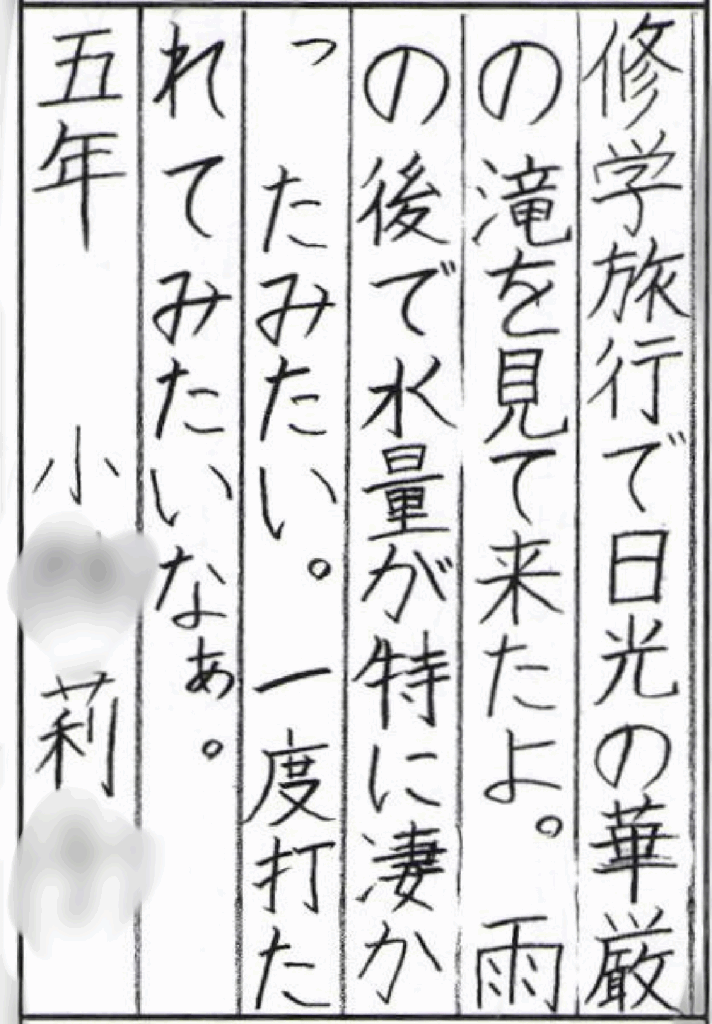 修学旅行で日光の華厳
の滝を見て来たよ。雨
の後で水量が特に凄か
ったみたい。一度打た
れてみたいなぁ。
五年 小 莉